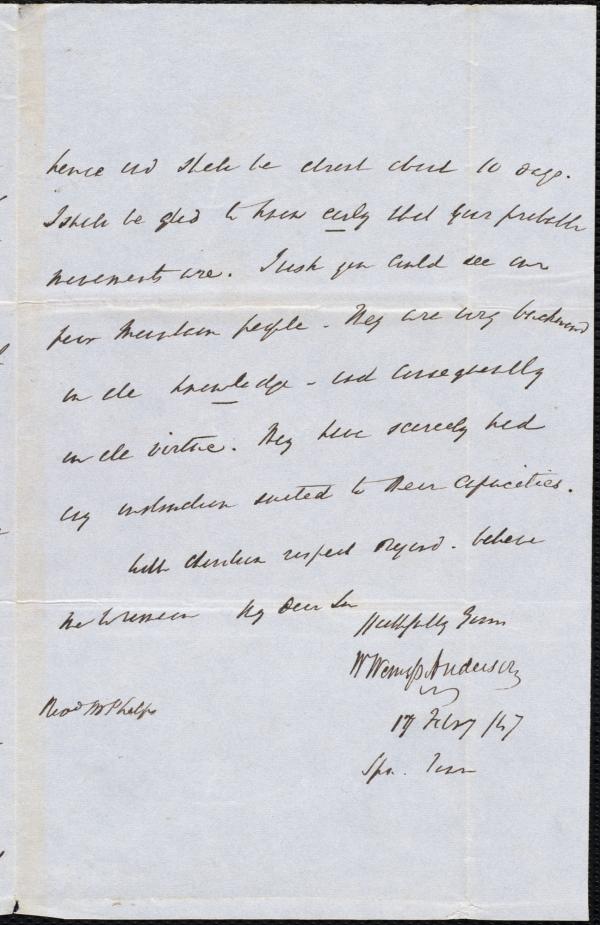 hence and shall be absent about 10 days.
I shall be glad to know early what your probable
movements are. I wish you could see our
poor Mountain people - They are very backward
in all knowledge - and consequently
in all virtue. They have scarcely had
any instruction suited to their capacities.
With christian respect & regard. believe
me to remain My Dear Sir
Faithfully Yours
W Wemyss Anderson
Revd Mr Phelps
17 Feby /47
Spn. Town